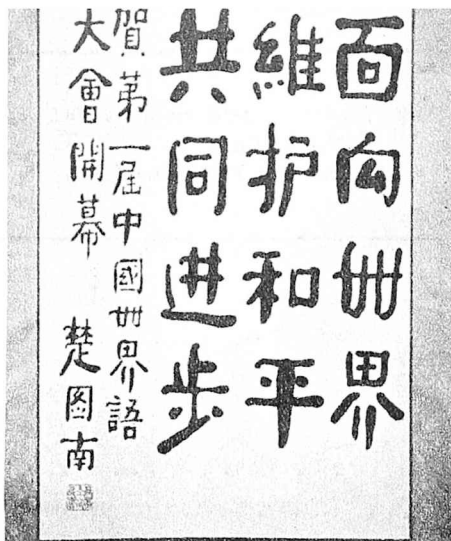 面向世界
維护和平
共同进步
賀第一届中國世界語
大會開幕 楚图南